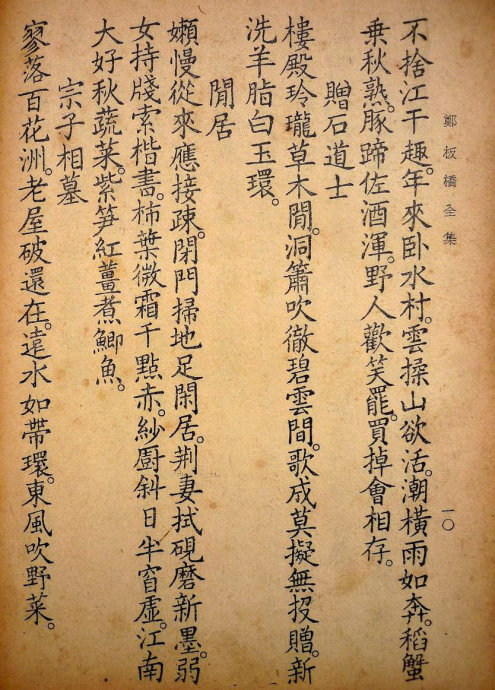 鄭板橋全集
一〇
不捨江干趣。年來卧水村。雲揉山欲活。潮橫雨如奔。稻蟹
乘秋熟。豚蹄佐酒渾。野人歡笑罷。買掉會相存。
贈石道士
樓殿玲瓏草木閒。洞簫吹徹碧雲間。歌成莫擬無投贈。新
洗羊脂白玉環。
閒居
嬾慢從來應接疎。閉門掃地足閑居。荆妻拭硯磨新墨。弱
女持牋索楷書。柿葉微霜千點赤。紗廚斜日半窗虛。江南
大好秋蔬菜。紫笋紅薑煮鯽魚。
宗子相墓
寥落百花洲。老屋破還在。遠水如帶環。東風吹野菜。